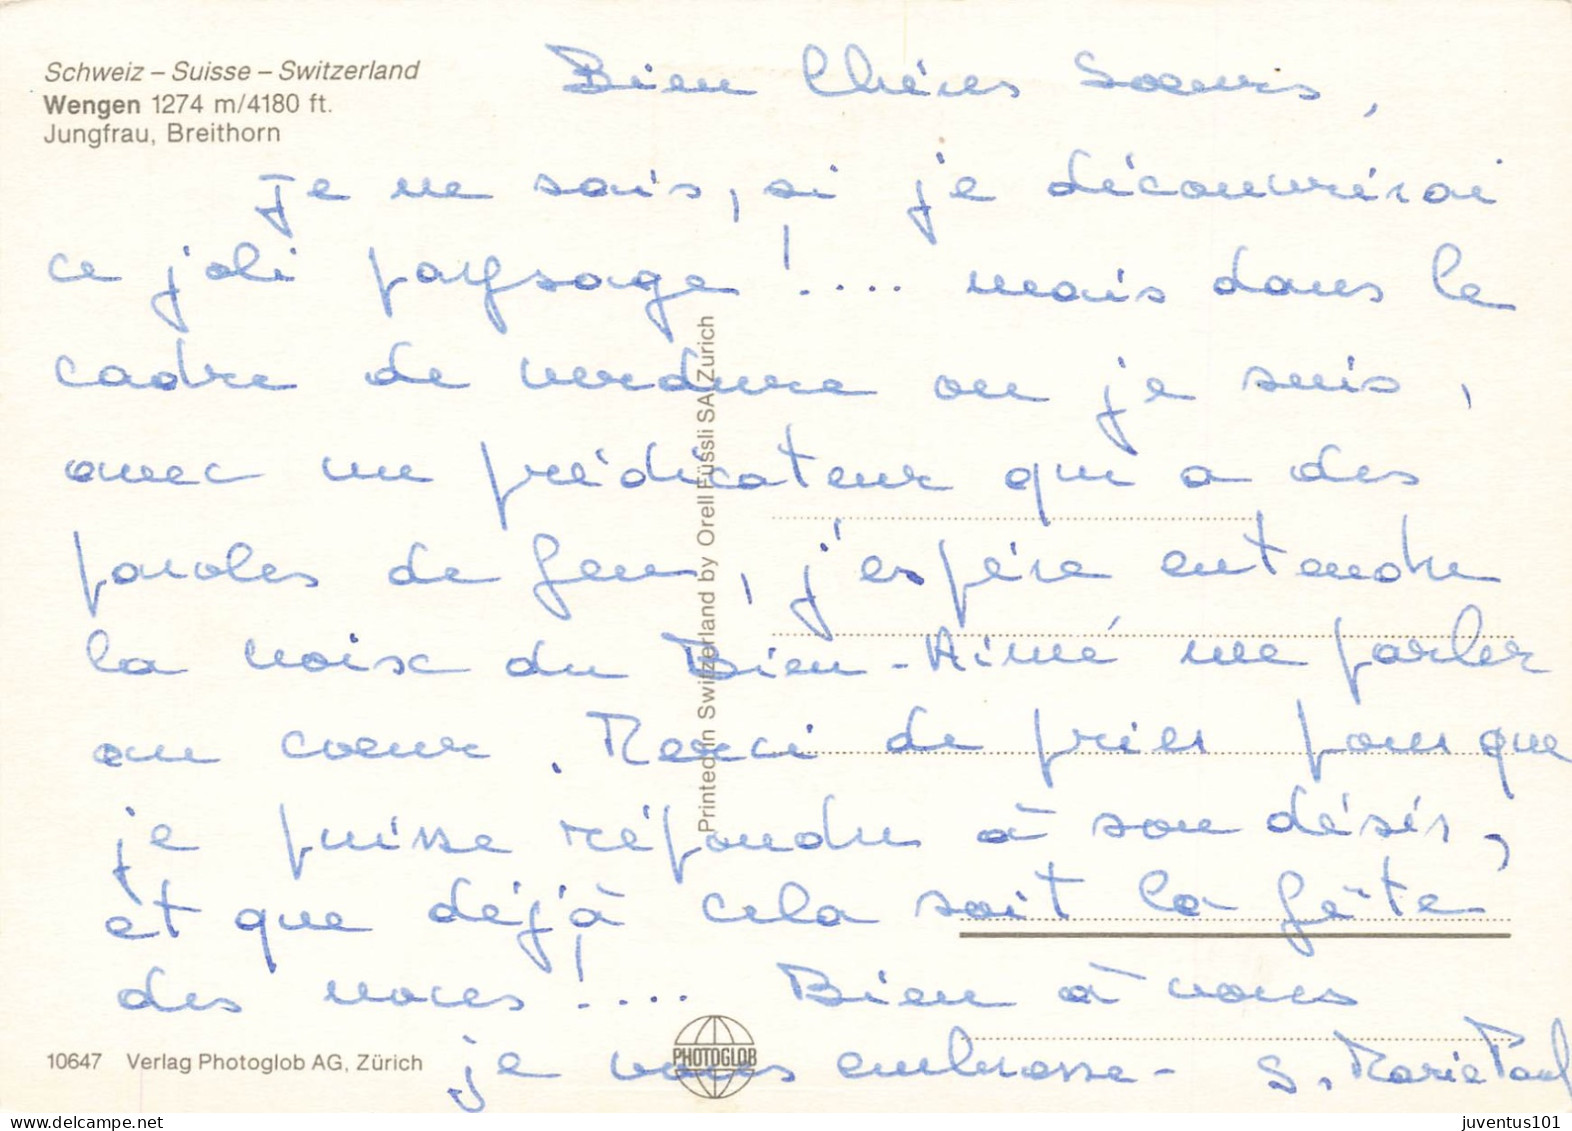 Schweiz – Suisse – Switzerland
Wengen 1274 m/4180 ft.
Jungfrau, Breithorn
Bien Chères Sœurs,
Je ne sais, si je découvrirai
ce joli paysage !.... mais dans le
cadre de verdure ou je suis,
avec un prédicateur qui a des
paroles de feu, j'espère entendre
la voix du Bien-Aimé me parler
au cœur. Merci de prier pour que
je puisse répondre à son désir,
et que déjà cela soit la fête
des noces !.... Bien à vous
je vous embrasse - S. Marie Paul
Printed in Switzerland by Orell Füssli SA, Zürich
10647 Verlag Photoglob AG, Zürich
PHOTOGLOB
delcampe.net
juventus101